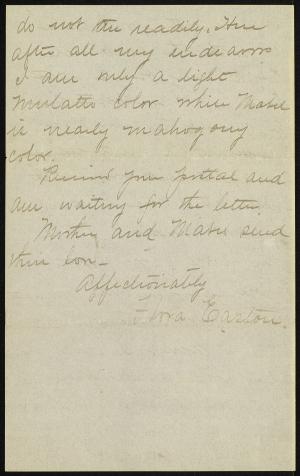 do not tan readily. Here
after all my endeavors
I am only a light
Mulatto color while Mabel
is nearly mahogony
color.
Received your postal and
am waiting for the letter.
Mother and Mabel send
their love_
Affectionately
Easton.